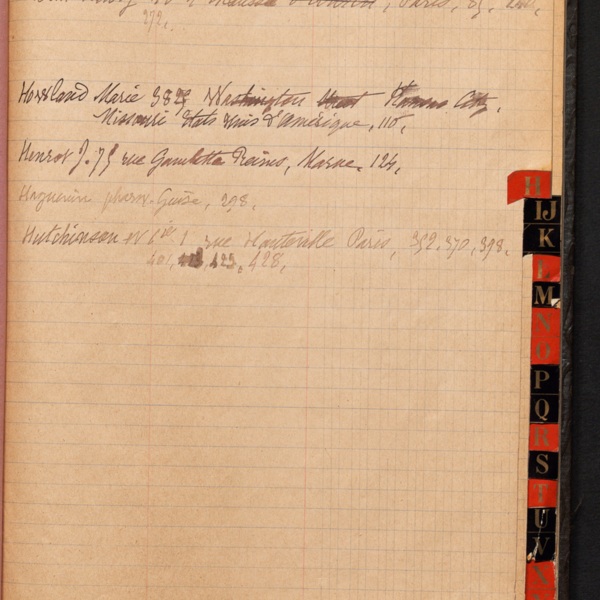 Paris, 89,
272.
Howland Marie 3829 Washington Kansas City,
Missouri états unis d'Amérique, 110,
Henrot J. 75 rue Gambetta Reims, Marne. 124,
Haguenin pharm. Guise, 298.
Hutchinson & Cie 1 rue Hauteville Paris, 352, 370, 398,
401, 423, 428,
H
IJ
K
L
M
N
O
P
Q
R
S
T
U
V